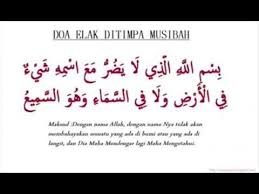 DOA ELAK DITIMPA MUSIBAH
بِسْمِ اللَّهِ الَّذِي لَا يَضُرُّ مَعَ اسْمِهِ شَيْءٌ
فِي الْأَرْضِ وَلَا فِي السَّمَاءِ وَهُوَ السَّمِيعُ
Maksud :Dengan nama Allah, dengan nama Nya tidak akan
membahayakan sesuatu yang ada di bumi atau yang ada di
langit, dan Dia Maha Mendengar lagi Maha Mengetahui.